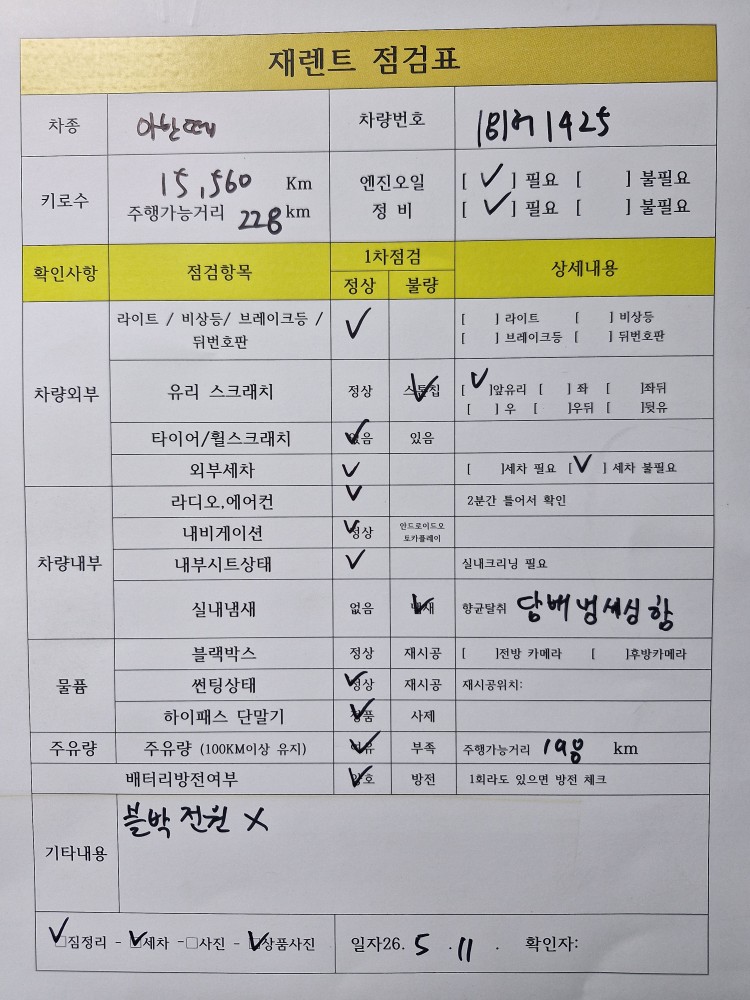 재렌트 점검표
차종 아반떼 차량번호 181허1425
키로수 15,560 Km 엔진오일 [ ✓ ] 필요 [ ] 불필요
주행가능거리 228 km 정 비 [ ✓ ] 필요 [ ] 불필요
확인사항 점검항목 1차점검 상세내용
정상 불량
차량외부
라이트 / 비상등/ 브레이크등 / ✓ [ ] 라이트 [ ] 비상등
뒤번호판 [ ] 브레이크등 [ ] 뒤번호판
유리 스크래치 정상 스톤칩 ✓ [ ✓ ]앞유리 [ ] 좌 [ ]좌뒤
[ ] 우 [ ]우뒤 [ ]뒷유
타이어/휠스크래치 ✓ 없음 있음
외부세차 ✓ [ ]세차 필요 [ ✓ ] 세차 불필요
차량내부
라디오,에어컨 ✓ 2분간 틀어서 확인
내비게이션 ✓ 정상 안드로이드오
토카플레이
내부시트상태 ✓ 실내크리닝 필요
실내냄새 없음 냄새 ✓ 향균탈취 담배 냄세심함
물품
블랙박스 정상 재시공 [ ]전방 카메라 [ ]후방카메라
썬팅상태 ✓ 정상 재시공 재시공위치:
하이패스 단말기 ✓ 정품 사제
주유량 주유량 (100KM이상 유지) ✓ 여유 부족 주행가능거리 198 km
배터리방전여부 ✓ 양호 방전 1회라도 있으면 방전 체크
기타내용 블박 전원 X
✓ □짐정리 - ✓ □세차 - □사진 - ✓ □상품사진 일자26. 5 . 11 . 확인자: